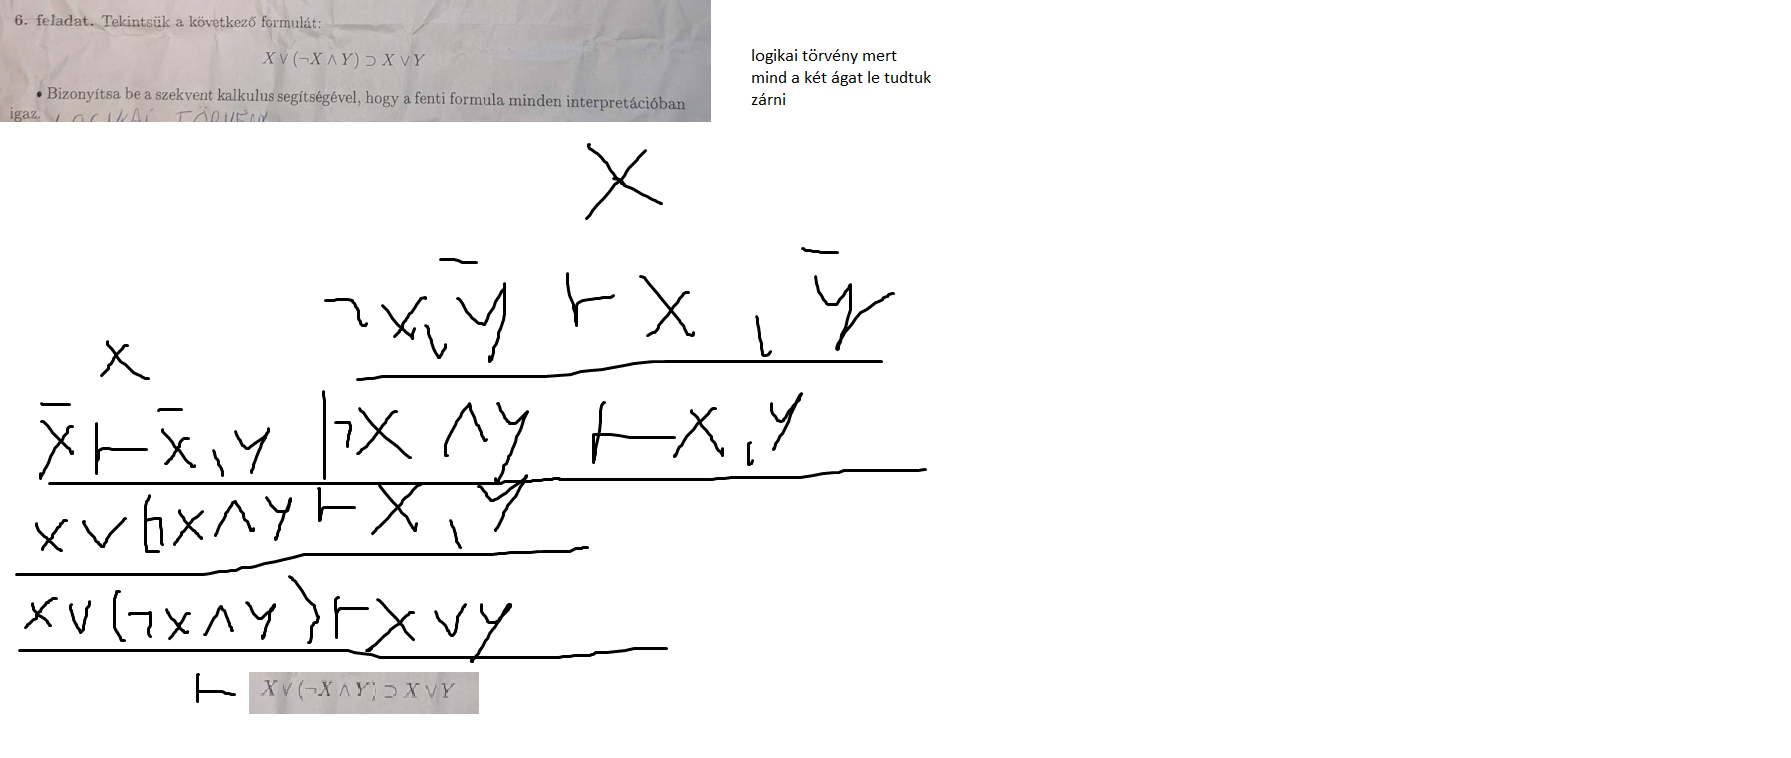 6. feladat. Tekintsük a következő formulát:
X ∨ (¬X ∧ Y) ⊃ X ∨ Y
• Bizonyítsa be a szekvent kalkulus segítségével, hogy a fenti formula minden interpretációban
igaz. LOGIKAI TÖRVÉNY
logikai törvény mert
mind a két ágat le tudtuk
zárni
X
¬X, Y ⊢ X, Y
X
X ⊢ X, Y | ¬X ∧ Y ⊢ X, Y
X ∨ (¬X ∧ Y ⊢ X, Y
X ∨ (¬X ∧ Y) ⊢ X ∨ Y
⊢ X ∨ (¬X ∧ Y) ⊃ X ∨ Y